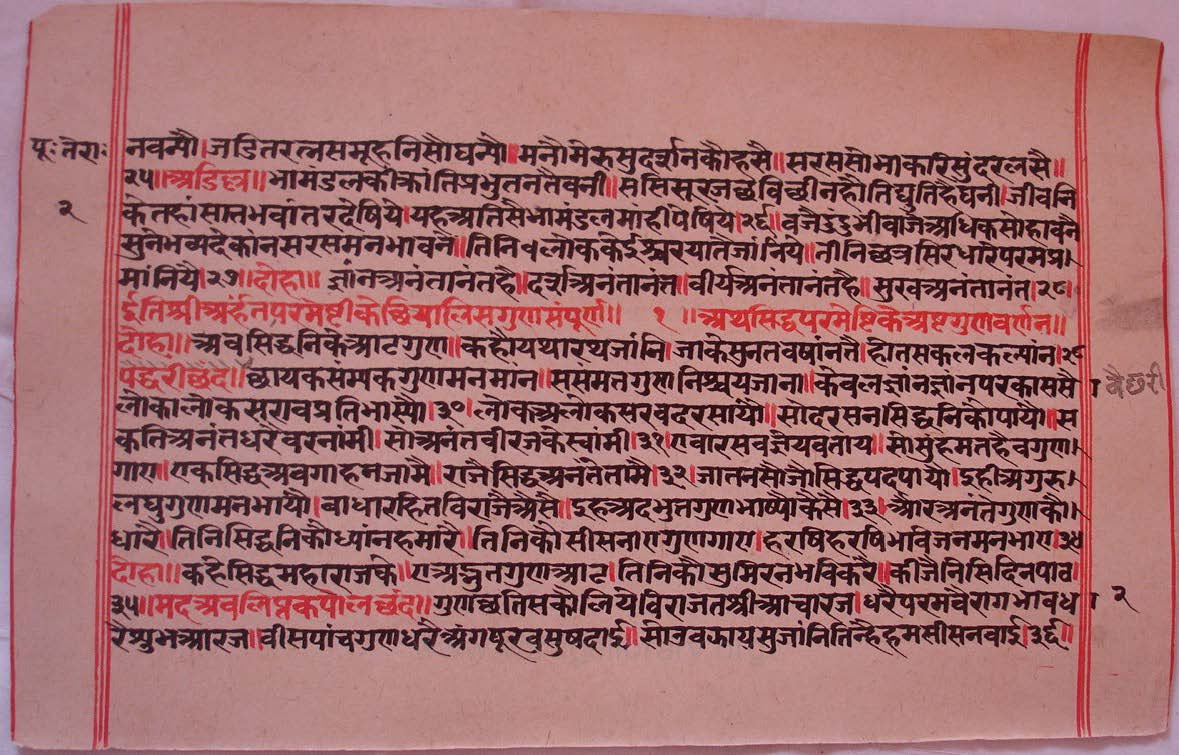 पू॰ तेरा॰
२
नवन्यौ।जडितरत्नसमूहनिसौघन्यौ॥मनौमेरुसुदर्शनकौहसै॥सरससोभाकरिसुंदरलसै॥
२५॥अडिल्ल॥भामंडलकीकांतिप्रभुतनतैवनी॥ससिसूरजछविछीनहोतिद्युतिहैघनी।जीवनि
केतहांसातभवांतरदेषिये।यहअतिसैभामंडलमांहीपेषिये।२६॥वजैदुदुभीवाजेअधिकसोहावनै
सुनेभव्यदेकांनसरसमनभावनै॥तिनिवलोकके
मांनिये।२७॥दोहा॥ज्ञांनअनंतानंतहै।दर्शअनंतानंत॥वीर्यअनंतानंतहै॥सुखअनंतानंत।२८।
ईतिश्रीअर्हंतपरमेष्टीकेछियालिसगुणसंपूर्ण॥ १ ॥अथसिद्धपरमेष्टिकेअष्टगुणवर्णन॥
दोहा॥अवसिद्धनिकेआठगुण॥कहौयथारथजांनि।जाकेसुनतवषांनतै।होतसकलकल्यांन।२९
पद्धरीछंद॥छायकसम्यकगुणमनमांन॥ससंमतगुणनिश्चयजाना॥केवलज्ञांनज्ञानपरकाससै।
लोकालोकसरावप्रतिभास्यौ।३०।लोकअलोकसरवदरसायौ॥सोदरसनसिद्धनिकोपायौ॥स
कतिअनंतधरैवरनांमी।सोअनंतवीरजकेस्वांमी।३१।
गाए॥एकसिद्धअवगाहनजामै॥राजैसिद्धअनंतेतामै।३२।जातनसौजौसिद्धपदपायौ।इहीअगुरु।
लघुगुणमनभायौ।बाधारहितविराजैअैसै॥इहअदभुतगुणभाष्यौकैसै।३३।औरअनंतगुणकौ।
धारै।तिनिसिद्धनिकौध्यांनहमारै।तिनिकौसीसनाएगुणगाए।हरषिहरषिभविजनमनभाए।३४
दोहा॥कहेसिद्धमहाराजके॥एअद्भुतगुणआठ।तिनिकौसुमिरनभविकरै॥कीजैनिसिदिनपाठ
३५॥मदअवलिप्तकपोलछंद॥गुणछतिसकौलियेविराजतश्रीआचारज।धरैपरमवैरागभावध।
रैशुभआरज।वीसपांचगुणधरैअंगपूरवसुषदाई॥सोउवझायसुजांनितिन्हैहमसीसनवाई।३६॥
२